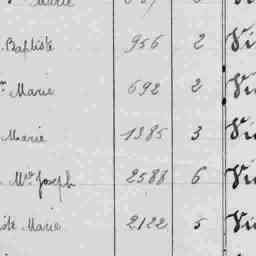 Marie
Baptiste 956 2 Vi
Marie 692 2 Vi
Marie 1385 3 Vi
Mie Joseph 2588 6 Vi
Marie 2122 5 Vi